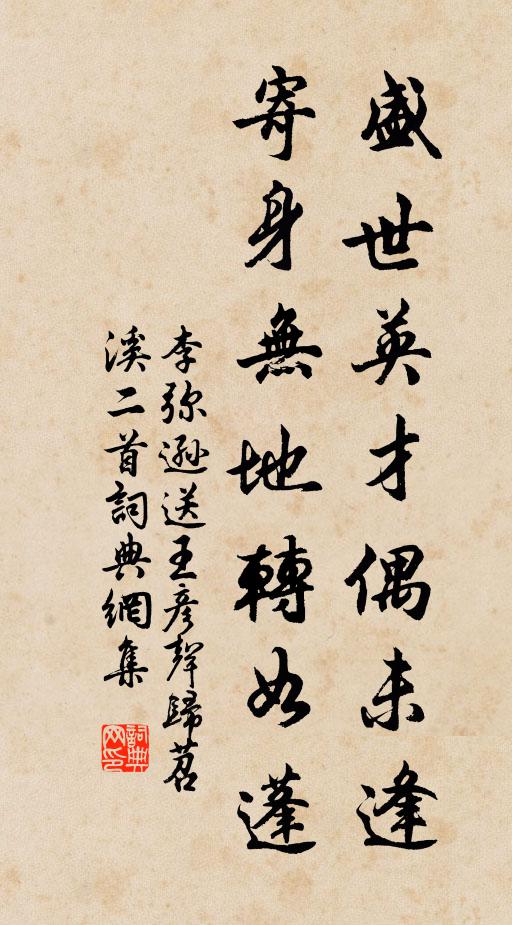 盛世英才偶未逢
寄身無地轉如蓬
李弥遜送王彥聲歸苕
溪二首詞典網集
詞典
网印